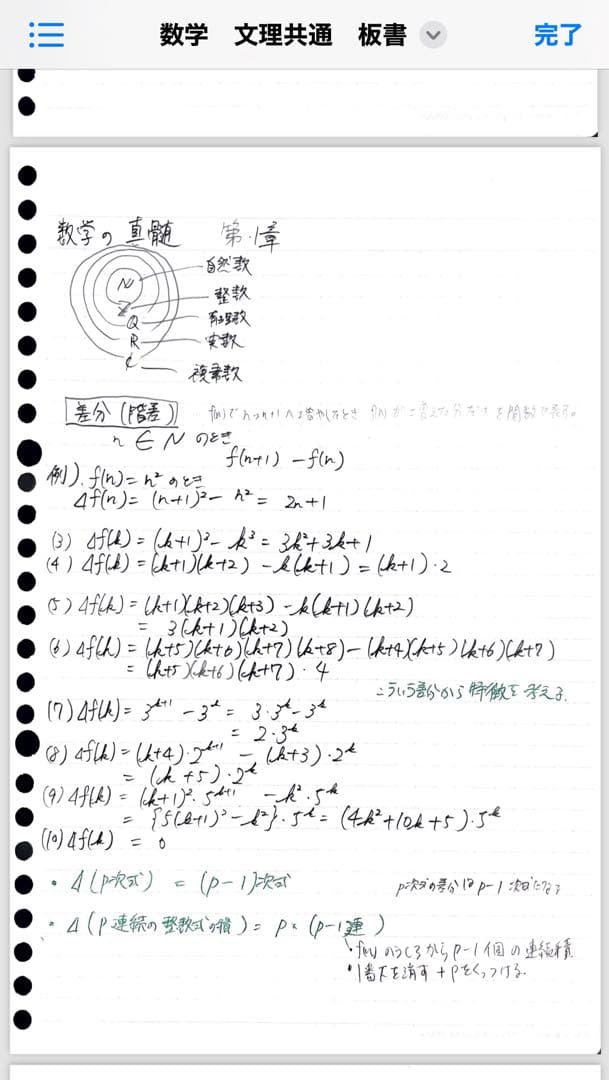 数学 文理共通 板書
完了
数学の真髄 第1章
N
Z
Q
R
C
自然数
整数
有理数
実数
複素数
差分(階差)
n∈Nのとき
f(n+1) - f(n)
例). f(n)=n²のとき
Δf(n)= (n+1)² - n² = 2n+1
(3) Δf(k) = (k+1)³ - k³ = 3k²+3k+1
(4) Δf(k) = (k+1)(k+2) - k(k+1) = (k+1)・2
(5) Δf(k) = (k+1)(k+2)(k+3) - k(k+1)(k+2)
= 3(k+1)(k+2)
(6) Δf(k) = (k+5)(k+6)(k+7)(k+8) - (k+4)(k+5)(k+6)(k+7)
= (k+5)(k+6)(k+7)・4
こういう部分から特徴を考える.
(7) Δf(k) = 3^{k+1} - 3^k = 3・3^k - 3^k
= 2・3^k
(8) Δf(k) = (k+4)・2^{k+1} - (k+3)・2^k
= (k+5)・2^k
(9) Δf(k) = (k+1)²・5^{k+1} - k²・5^k
= {5(k+1)² - k²}・5^k = (4k²+10k+5)・5^k
(10) Δf(k) = 0
・Δ(p次式) = (p-1)次式
p次式の差分はp-1次式になる
・Δ(p連続の整数式の積) = p×(p-1連)
・f(k)のうしろからp-1個の連続積
・1番下を消す+pをくっつける.